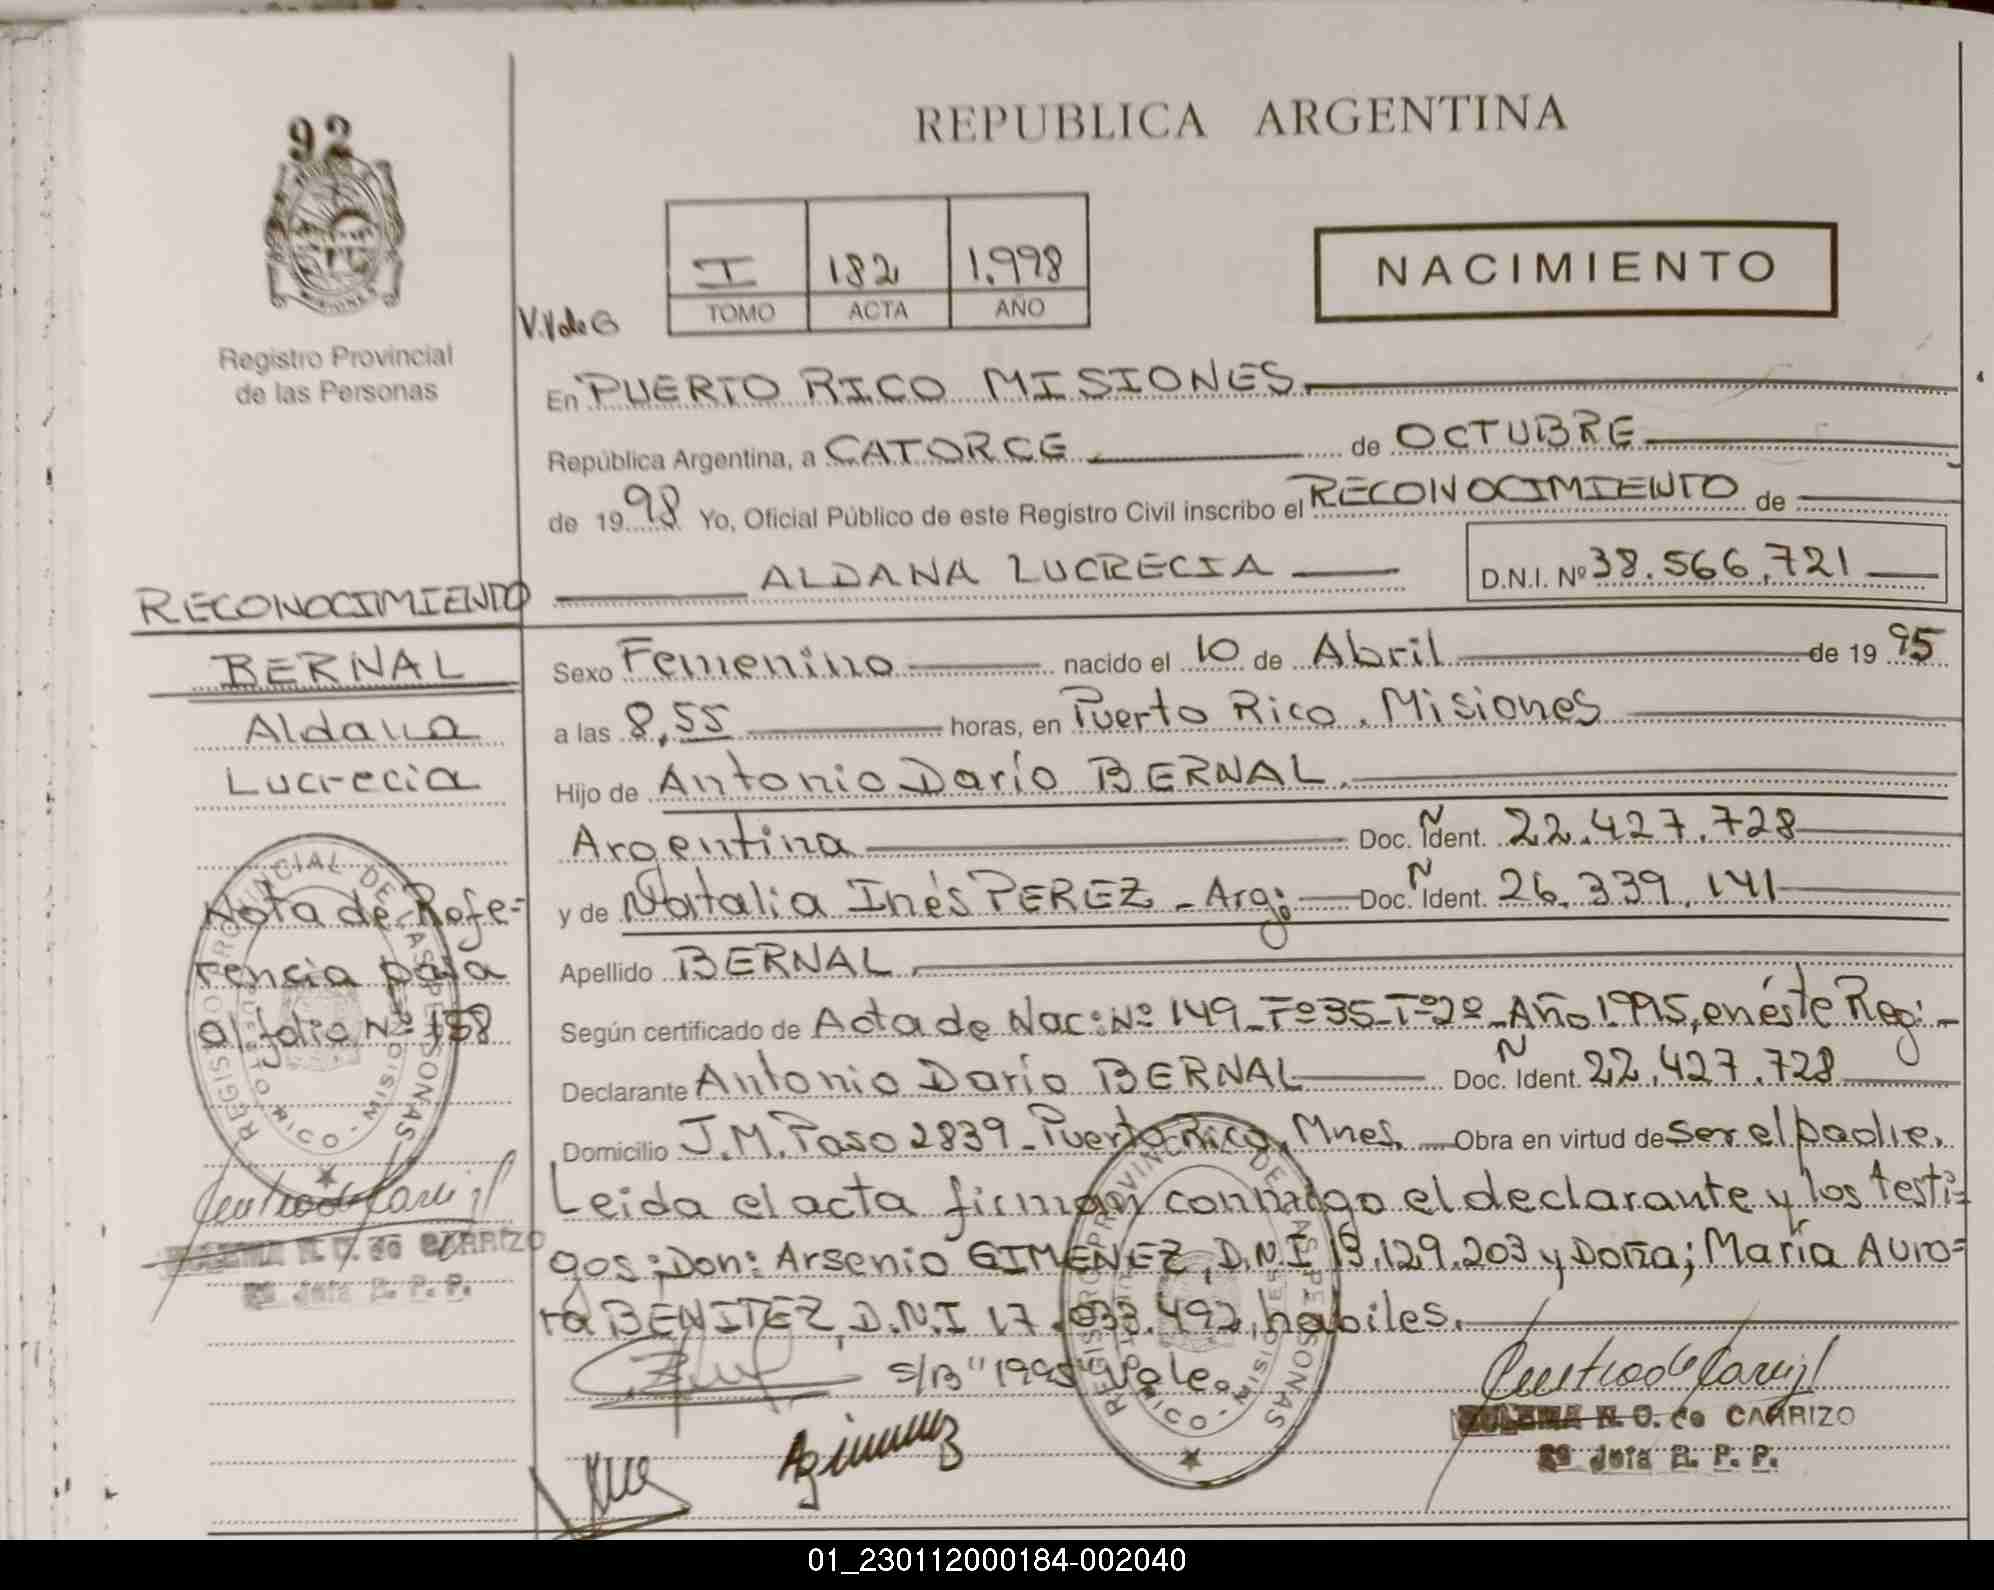 92
REPUBLICA ARGENTINA
I 182 1.998
TOMO ACTA AÑO
NACIMIENTO
Registro Provincial
de las Personas
En PUERTO RICO MISIONES.
República Argentina, a CATORCE de OCTUBRE
de 1998 Yo, Oficial Público de este Registro Civil inscribo el RECONOCIMIENTO de
ALDANA LUCRECIA D.N.I. Nº 38.566.721
RECONOCIMIENTO
BERNAL
Aldana
Lucrecia
Nota de Refe=
rencia para
al folio Nº 158
Sexo Femenino nacido el 10 de Abril de 1995
a las 8,55 horas, en Puerto Rico. Misiones
Hijo de Antonio Darío BERNAL.
Argentina Doc. Ident. 22.427.728
y de Natalia Inés PEREZ - Arg: Doc. Ident. 26.339.141
Apellido BERNAL
Según certificado de Acta de Nac: Nº 149-Fº35-Tº2º-Año 1995, en éste Reg:-
Declarante Antonio Darío BERNAL Doc. Ident. 22.427.728
Domicilio J.M. Paso 2839 - Puerto Rico, Mnes. Obra en virtud de ser el padre.
Leida el acta firman conmigo el declarante y los testi=
gos: Don: Arsenio GIMENEZ, D.N.I 13.129.203 y Doña; María Auro=
ra BENITEZ, D.N.I 17.033.492, habiles.
S/B "1995" Vale.
REGISTRO PROVINCIAL DE LAS PERSONAS
N. O. de CARRIZO
Jefa R. P. P.
REGISTRO PROVINCIAL DE LAS PERSONAS
N. O. de CARRIZO
Jefa R. P. P.
01_230112000184-002040